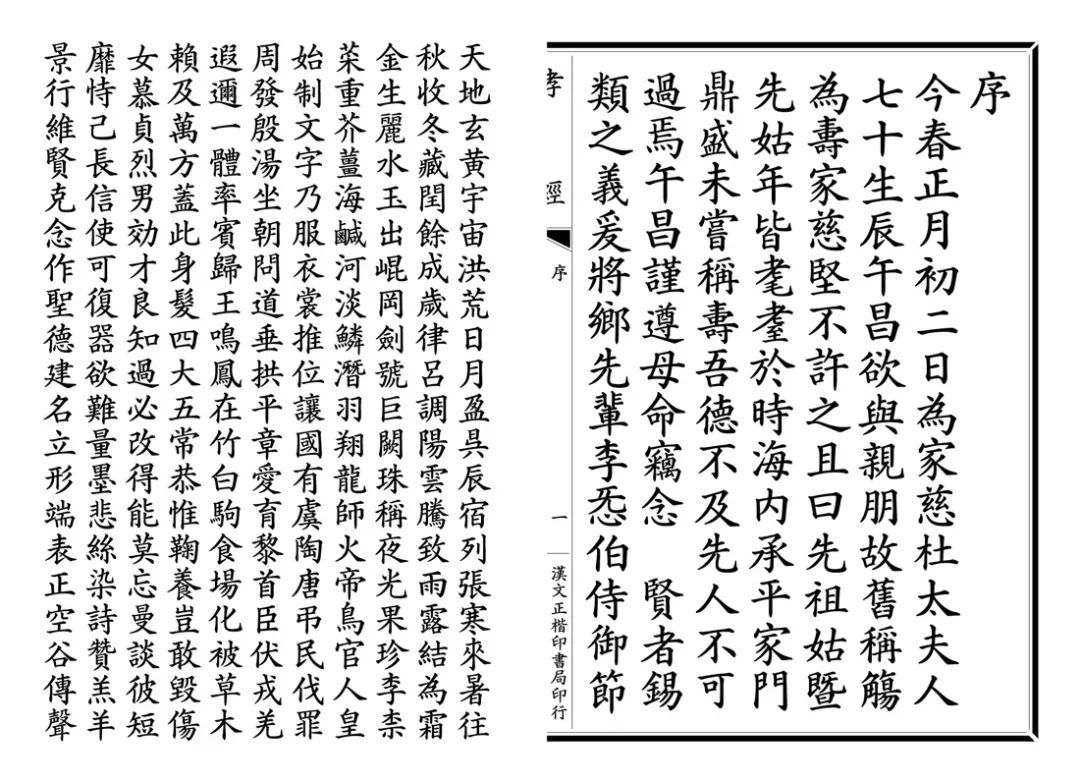 序
今春正月初二日為家慈杜太夫人
七十生辰午昌欲與親朋故舊稱觴
為壽家慈堅不許之且曰先祖姑暨
先姑年皆耄耋於時海內承平家門
鼎盛未嘗稱壽吾德不及先人不可
過焉午昌謹遵母命竊念 賢者錫
類之義爰將鄉先輩李㤅伯侍御節
孝經 序 一 漢文正楷印書局印行
天地玄黃宇宙洪荒日月盈昃辰宿列張寒來暑往
秋收冬藏閏餘成歲律呂調陽雲騰致雨露結為霜
金生麗水玉出崐岡劍號巨闕珠稱夜光果珍李柰
菜重芥薑海鹹河淡鱗潛羽翔龍師火帝鳥官人皇
始制文字乃服衣裳推位讓國有虞陶唐弔民伐罪
周發殷湯坐朝問道垂拱平章愛育黎首臣伏戎羌
遐邇一體率賓歸王鳴鳳在竹白駒食場化被草木
賴及萬方蓋此身髮四大五常恭惟鞠養豈敢毀傷
女慕貞烈男効才良知過必改得能莫忘罔談彼短
靡恃己長信使可復器欲難量墨悲絲染詩贊羔羊
景行維賢克念作聖德建名立形端表正空谷傳聲